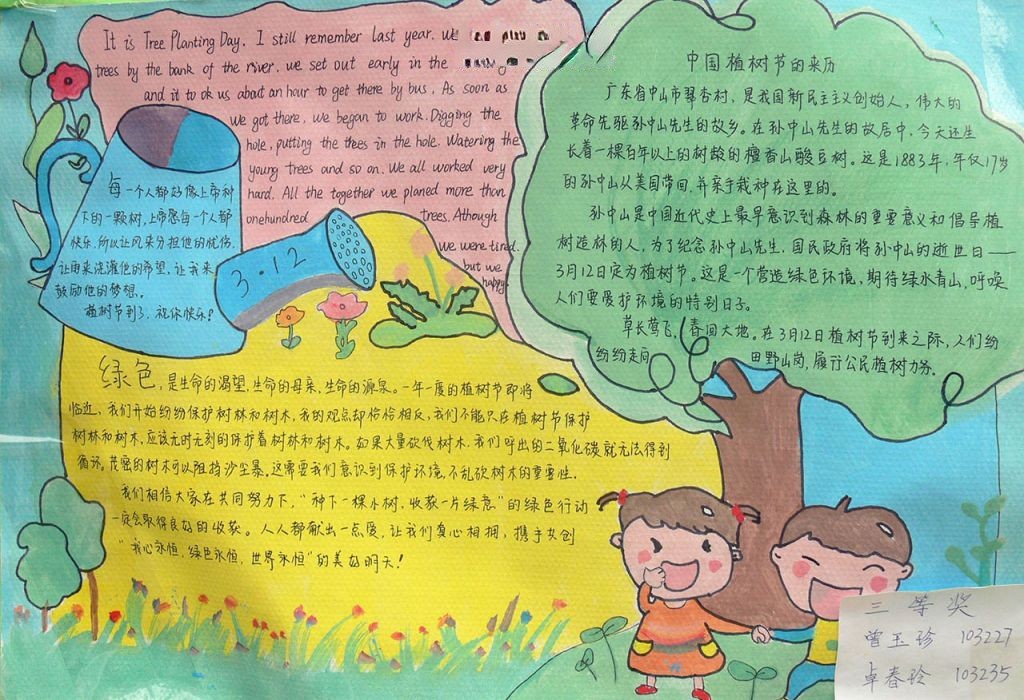 It is Tree Planting Day. I still remember last year. we
trees by the bank of the river. we set out early in the
and it to ok us about an hour to get there by bus, As soon as
we got there, we began to work. Digging the
hole, putting the trees in the hole. Watering the
young trees and so on. We all worked very
hard. All the together we planed more than
onehundred trees. Athough
we were tired.
but we
happy.
每一个人都好像上帝种
下的一颗树,上帝愿每一个人都
快乐,所以让风来分担他的忧伤,
让雨来浇灌他的希望,让我来
鼓励他的梦想。
植树节到了,祝你快乐!
3.12
中国植树节的来历
广东省中山市翠杏村,是我国新民主主义创始人,伟大的
革命先驱孙中山先生的故乡。在孙中山先生的故居中,今天还生
长着一棵百年以上的树龄的檀香山酸豆树。这是1883年,年仅17岁
的孙中山从美国带回,并亲手栽种在这里的。
孙中山是中国近代史上最早意识到森林的重要意义和倡导植
树造林的人,为了纪念孙中山先生,国民政府将孙中山的逝世日——
3月12日定为植树节。这是一个营造绿色环境,期待绿水青山,呼唤
人们要爱护环境的特别日子。
草长莺飞,春回大地。在3月12日植树节到来之际,人们纷
纷纷走向田野山岗,履行公民植树力务。
绿色,是生命的渴望,生命的母亲,生命的源泉。一年一度的植树节即将
临近,我们开始纷纷保护树林和树木,我的观点却恰恰相反,我们不能只在植树节保护
树林和树木,应该无时无刻的保护着树林和树木。如果大量砍伐树木,我们呼出的二氧化碳就无法得到
循环。茂密的树木可以阻挡沙尘暴。这需要我们意识到保护环境,不乱砍树木的重要性。
我们相信大家在共同努力下,“种下一棵小树,收获一片绿意”的绿色行动
一定会取得良好的收获。人人都献出一点爱,让我们真心相拥,携手共创
“我心永恒,绿色永恒,世界永恒”的美好明天!
三等奖
曾玉珍 103227
卓春玲 103235